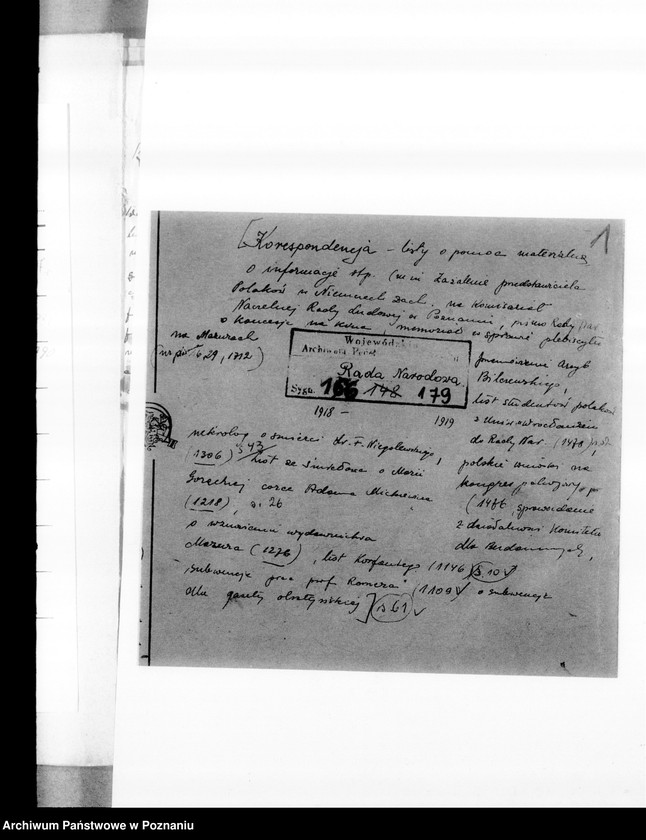 1
[Korespondencja – listy o pomoc materialną
o informacje itp. (m.in. zażalenie przedstawiciela
Polaków w Niemczech zach. na Komisariat
Naczelnej Rady Ludowej w Poznaniu, pismo Rady Nar.
o koncesję na kina, memoriał w sprawie plebiscytu
na Mazurach
(nr pis. 6, 29, 1712)
Wojewódzkie
Archiwum Państ
Rada Narodowa
Sygn. 166 178 179
1918 – 1919
przeniesienia Arcyb
Bilczewskiego,
list studentów polskich
z Uniw. wrocławskim
do Rady Nar. (1478)
polskie wnioski na
kongres pokojowy
(1486, sprawozdanie
z działalności Komitetu
dla
nekrolog o śmierci dr. F. Niegolewskiego,
(1206) s 43 list ze o Marii
Goreckiej córce Adama Mickiewicza
(1218), s. 26
o wznowieniu wydawnictwa
Mazura (1276), list Korfantego (1146) (s. 10)
subwencje prac prof. Romera" (1109) o subwencję
dla gazety olsztyńskiej] (s 61)
Archiwum Państwowe w Poznaniu